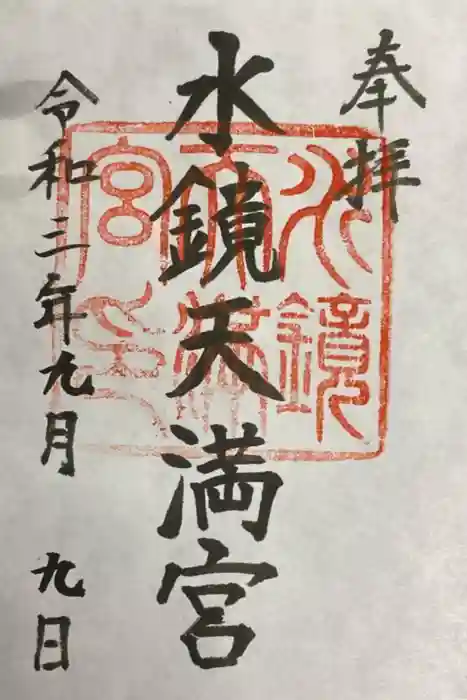 奉拝
水鏡天満宮
令和三年九月九日
水鏡
天満
宮印